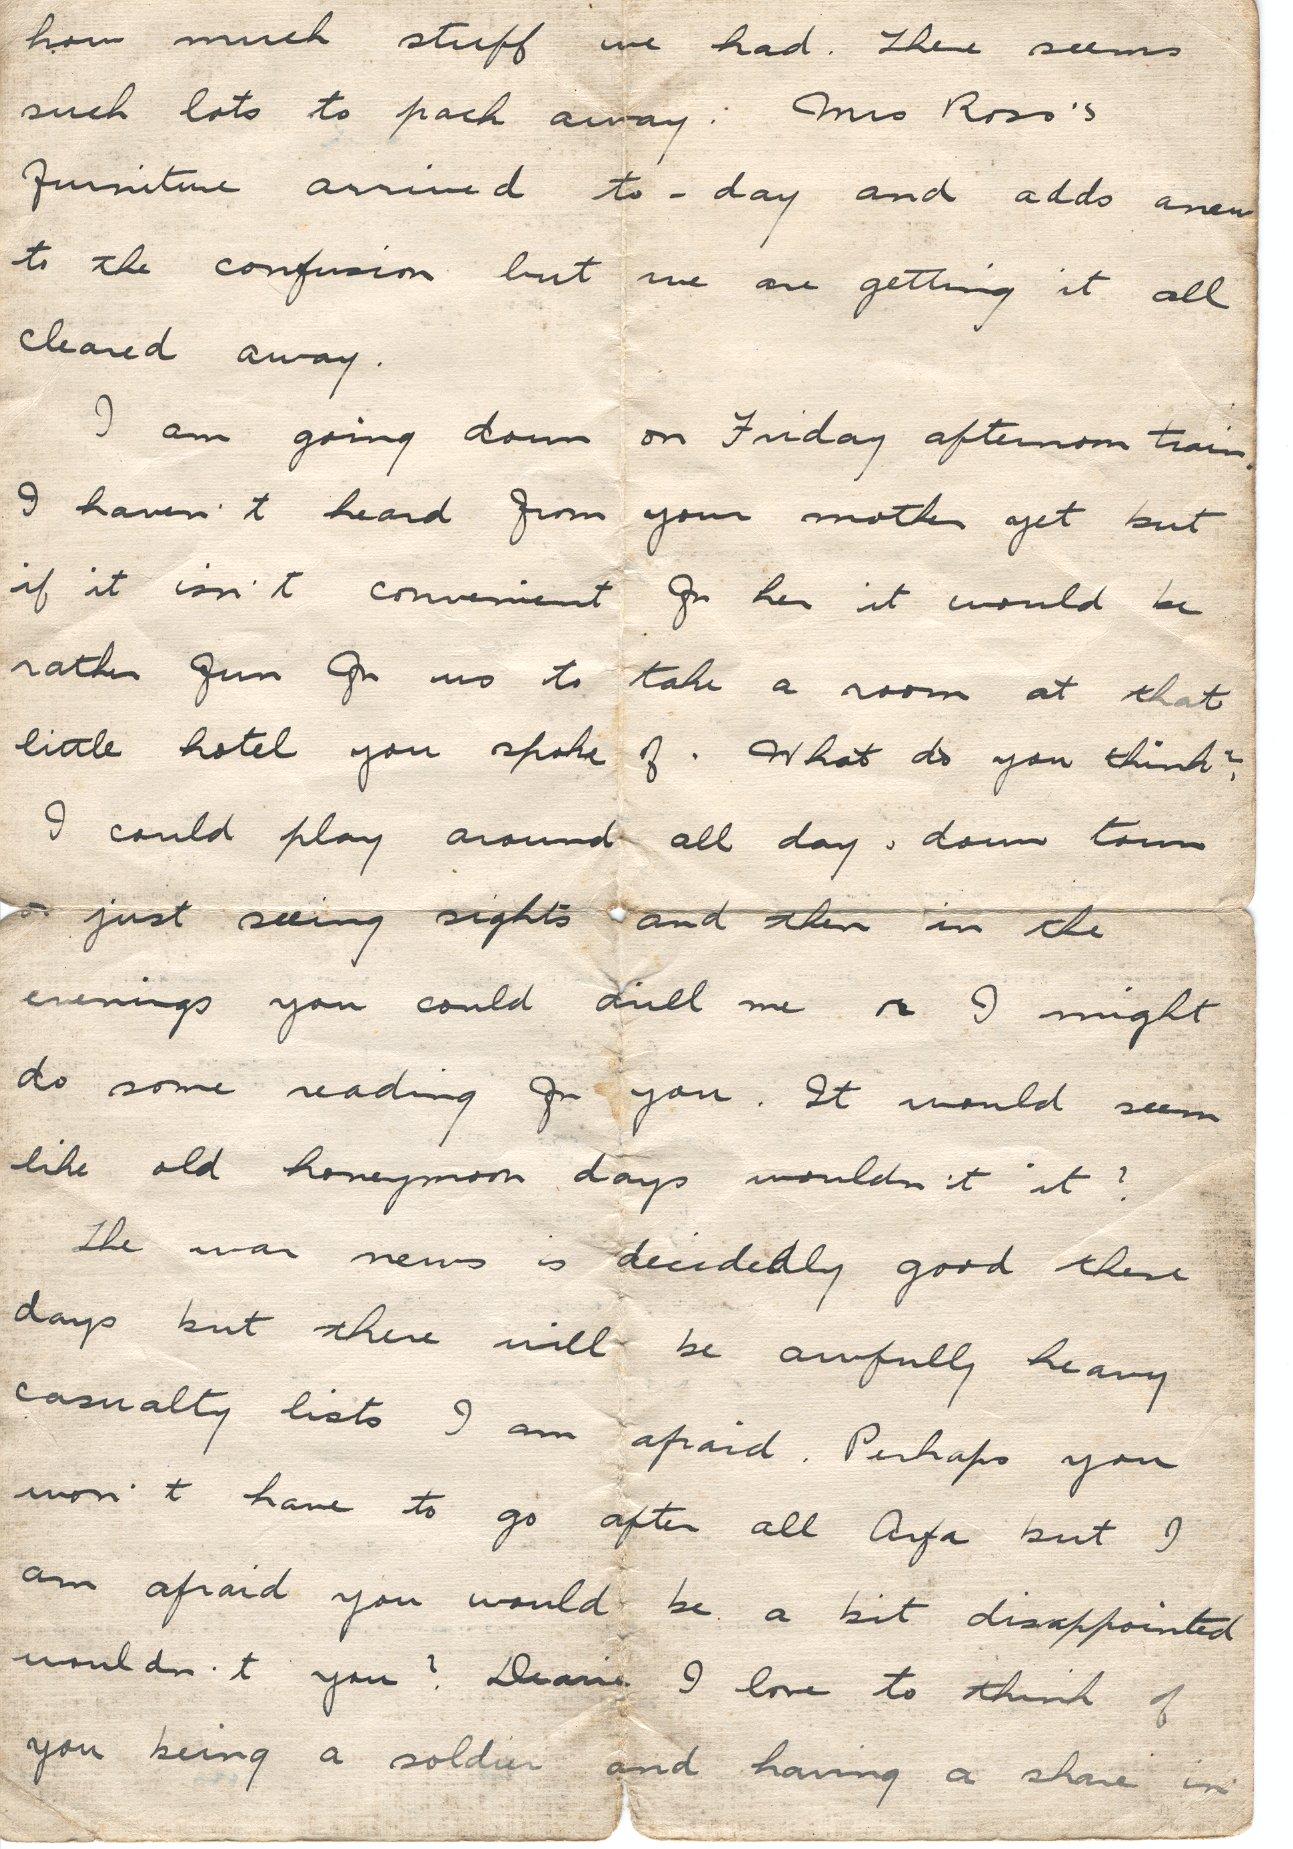 how much stuff we had. There seems
such lots to pack away. Mrs Ross's
furniture arrived to-day and adds anew
to the confusion but we are getting it all
cleared away.
I am going down on Friday afternoon train.
I haven't heard from your mother yet but
if it isn't convenient for her it would be
rather fun for us to take a room at that
little hotel you spoke of. What do you think?
I could play around all day, down town
or just seeing sights and then in the
evenings you could drill me or I might
do some reading for you. It would seem
like old honeymoon days wouldn't it?
The war news is decidedly good these
days but there will be awfully heavy
casualty lists I am afraid. Perhaps you
won't have to go after all Arfa but I
am afraid you would be a bit disappointed
wouldn't you? Dearie I love to think of
you being a soldier and having a share in